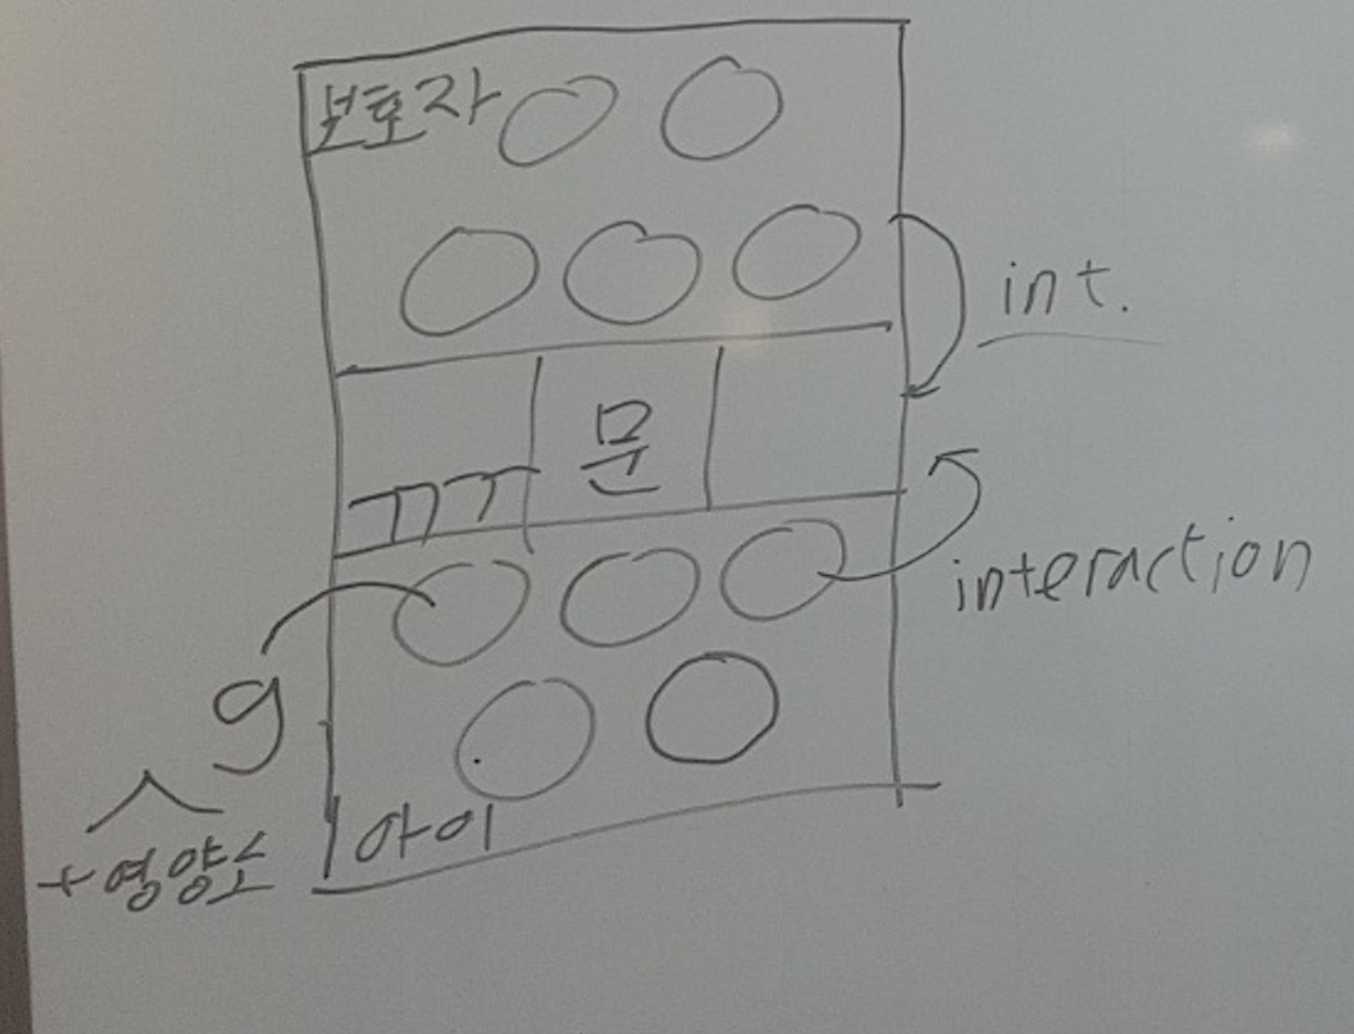 보호자
int.
문
interaction
g
+영양소
아이